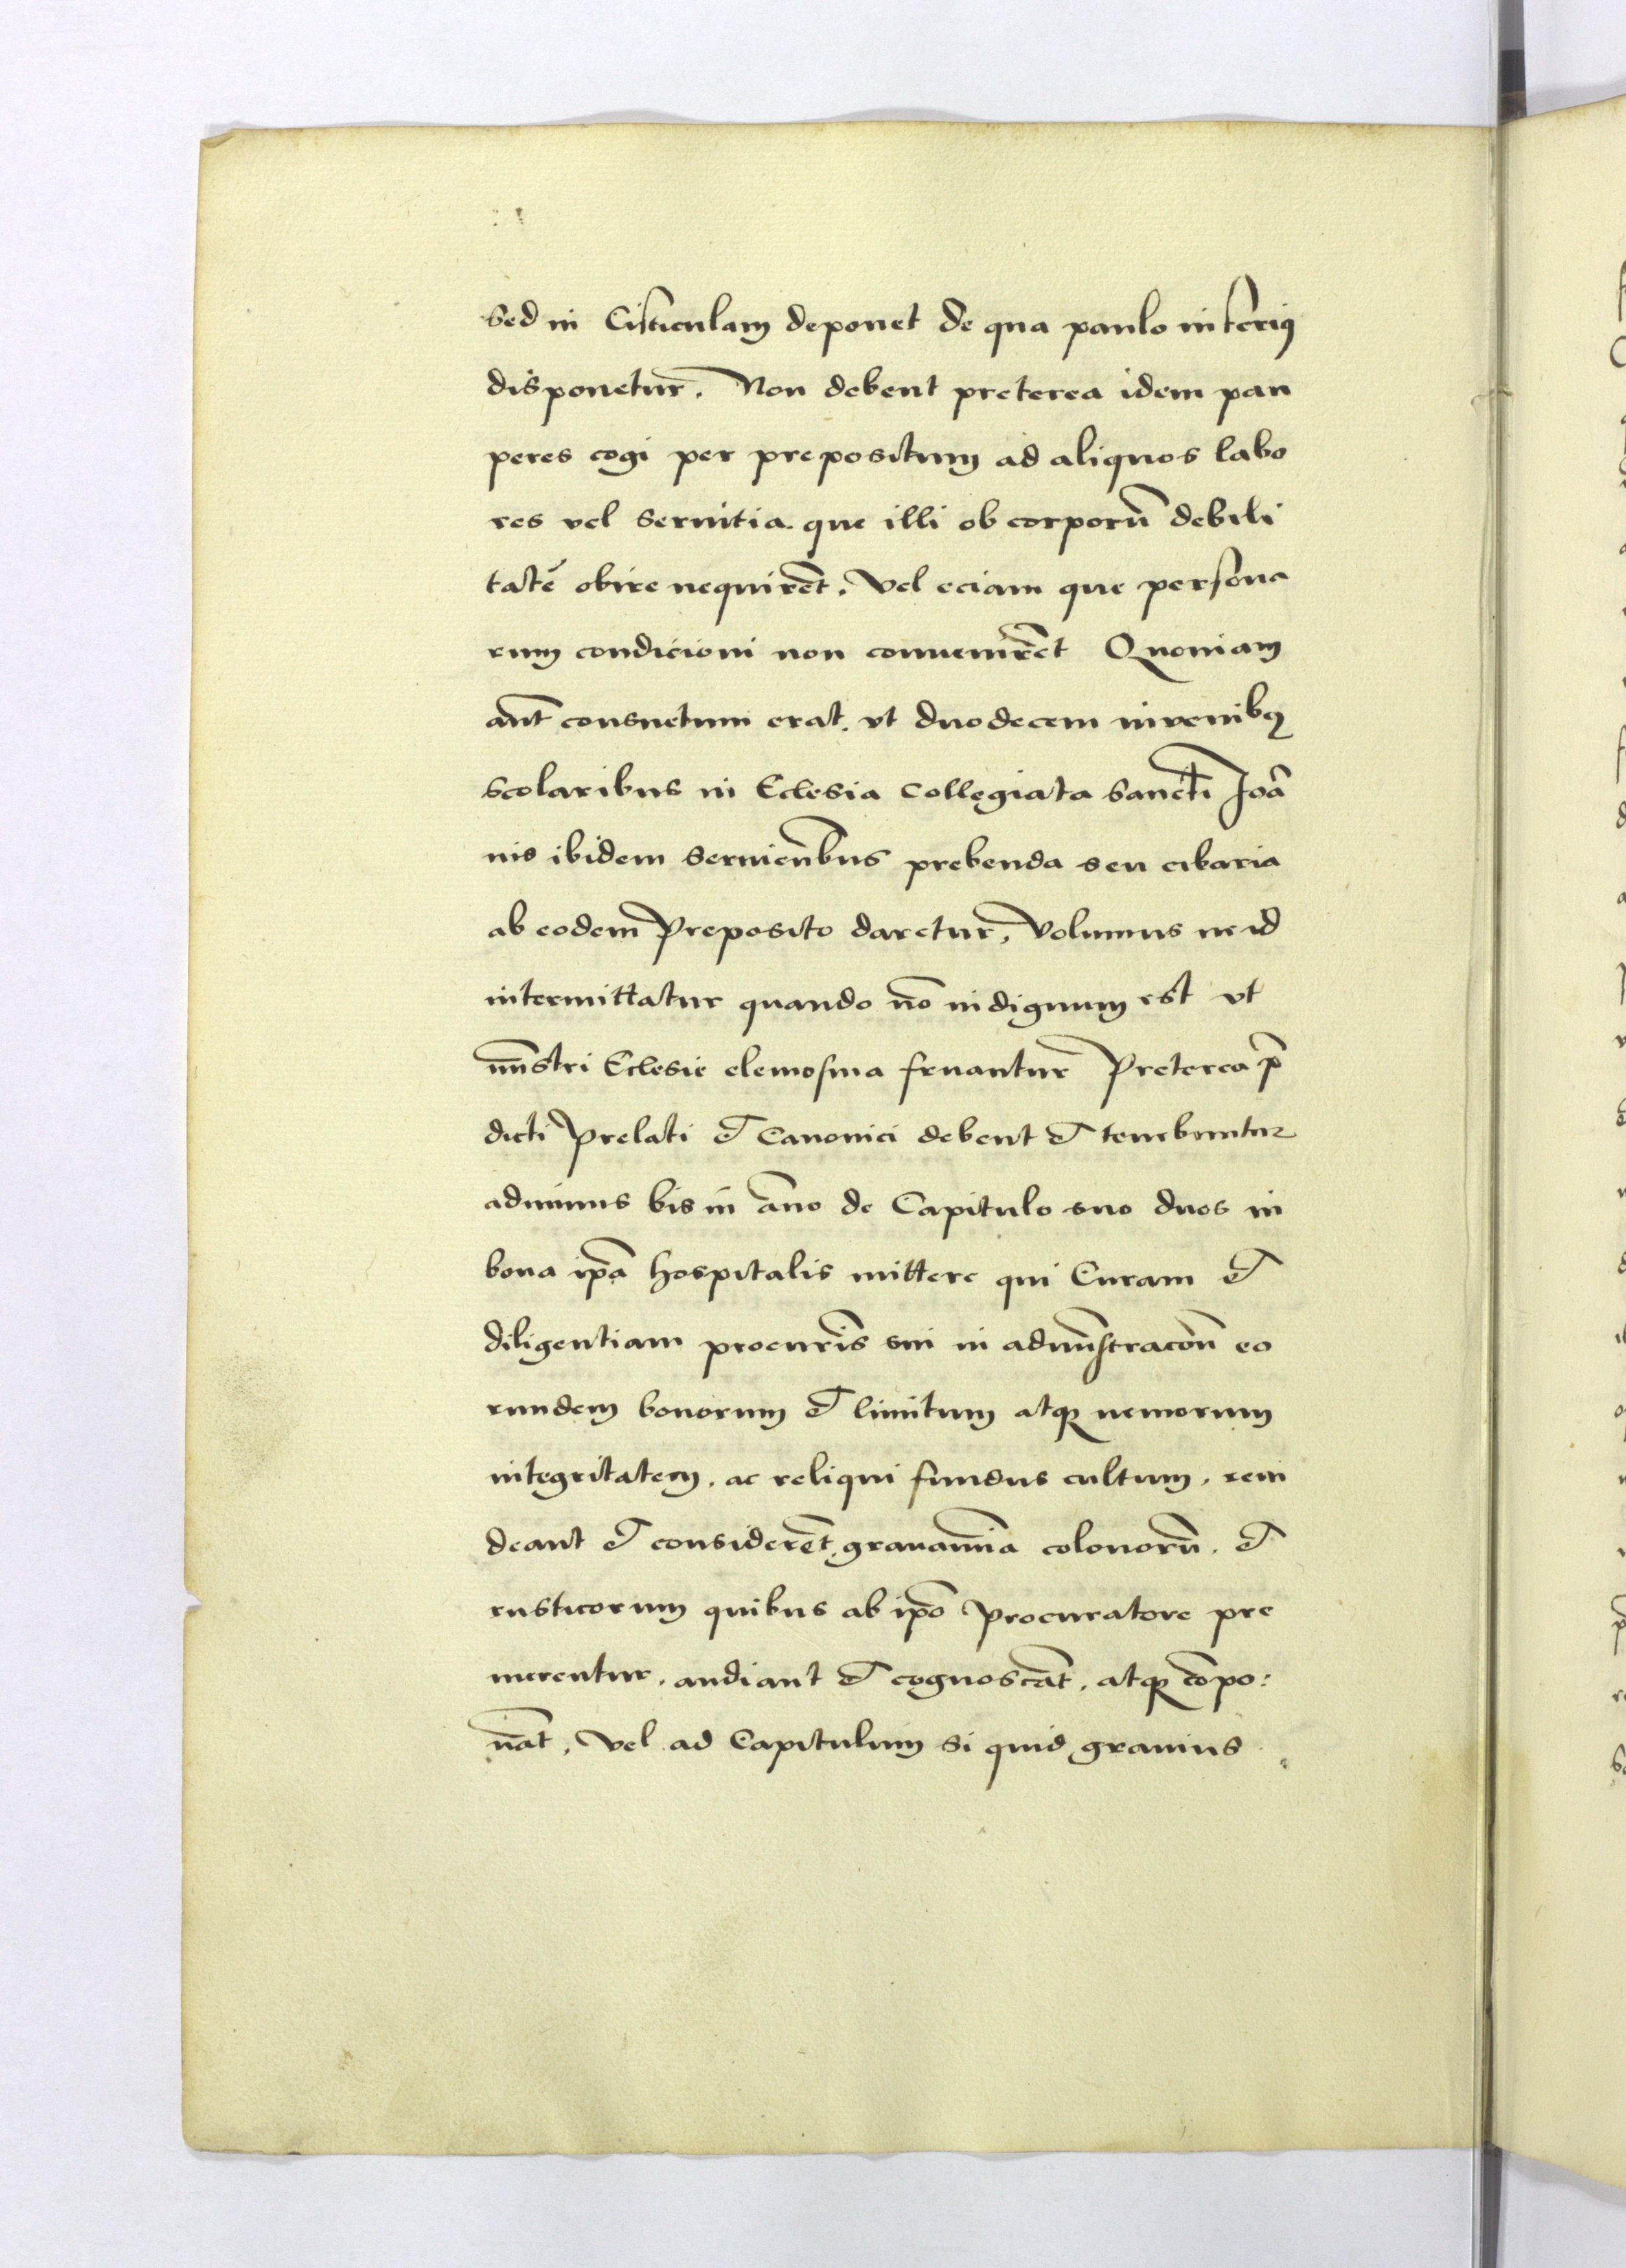 Sed in Cisticulam deponet de qua paulo inferiꝰ
disponetur. Non debent preterea idem pau
peres cogi per prepositum ad aliquos labo
res vel seruitia. que illi ob corporũ debili
tatẽ obire nequirẽt. Vel eciam que persona
rum condicioni non conuenirẽt Quoniam
aut̃ consuetum erat. vt duodecem iuvenibꝰ
scolaribus in Eclesia Collegiata Sancti Joã
nis ibidem seruien̄bus prebenda seu cibaria
ab eodem Preposito daretur, Volumus ne id
intermittatur quando nõ indignum est vt
mn̄stri Eclesie elemosina fruantur Preterea p̃
dicti Prelati et Canonici debent et tenebuntur
adminus bis in ãno de Capitulo suo duos in
bona ip̃a hospitalis mittere qui Curam et
diligentiam procur̃is sui in admn̄stracõn eo
rundem bonorum et limitum atqꝫ nemorum
integritatem. ac reliqui fundus cultum. reui
deant et considerẽt grauam̃ia colonorũ. et
rusticorum quibus ab ip̃o Procuratore pre
merentur. audiant et cognoscãt. atqꝫ cõpo:
nãt. Vel ad Capitulum si quid grauius